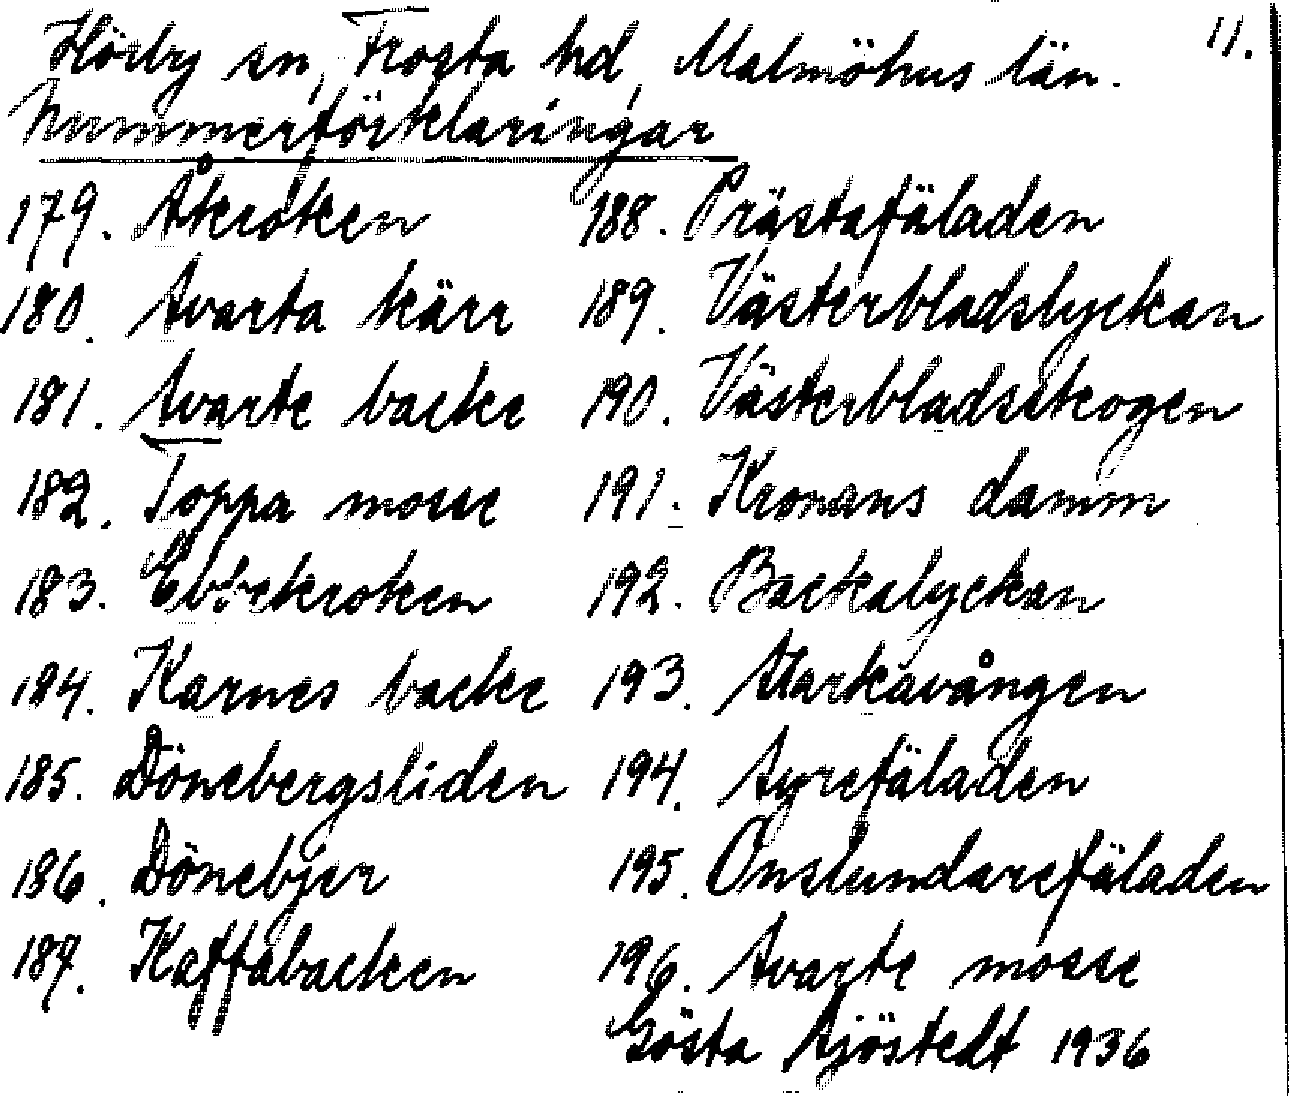 11.
Hörby sn, Frosta hd, Malmöhus län.
Nummerförklaringar
179. Åkroken
180. Svarta kärr
181. Svarte backe
182. Toppa mosse
183. Ebbekroken
184. Karnes backe
185. Dönebergsliden
186. Dönebjer
187. Kaffabacken
188. Prästafäladen
189. Västerbladslyckan
190. Västerbladsskogen
191. Kronans damm
192. Backalyckan
193. Starkavången
194. Syrefäladen
195. Onslundarefäladen
196. Svarte mosse
Gösta Sjöstedt 1936